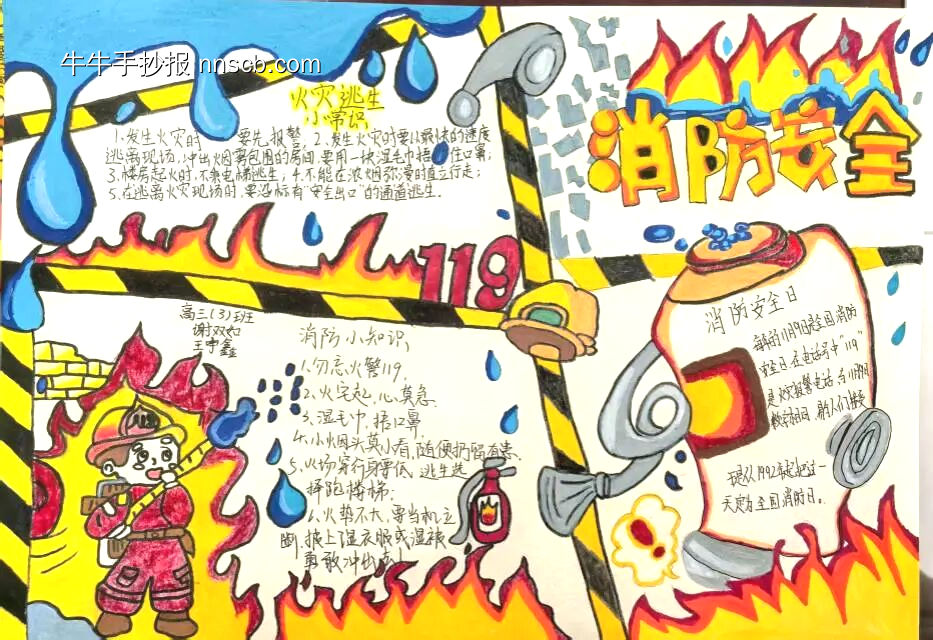 牛牛手抄报 nnscb.com
火灾逃生
小常识
1.发生火灾时 要先报警;2.发生火灾时要以最快的速度
逃离现场,冲出烟雾包围的房间,要用一块湿毛巾捂住口鼻;
3.楼房起火时,不乘电梯逃生;4.不能在浓烟弥漫时直立行走;
5.在逃离火灾现场时,要沿标有“安全出口”的通道逃生.
119
消防安全
高三(3)班
谢双如
王宇鑫
消防小知识
1.勿忘火警119.
2.火宅起,心莫急.
3.湿毛巾,捂口鼻.
4.小烟头莫小看,随便扔留有患.
5.火场穿行身要低,逃生选
择跑楼梯.
6.火势不大,要当机立
断,披上湿衣服或湿被
勇敢冲出去!
消防安全日
每年的11月9日是全国消防
安全日.在电话号中“119
是火灾报警电话,与11月9日
数字相同,
于是从1992年起把这一
天定为全国消防日。